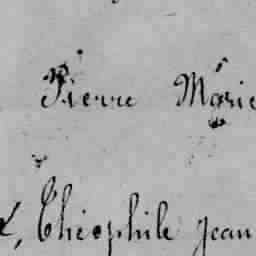 Pierre Marie
Théophile Jean